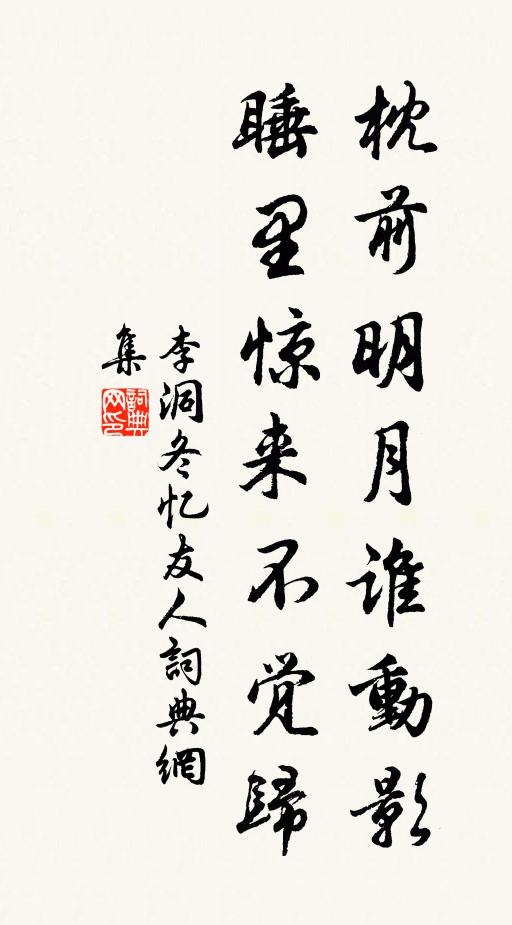 枕前明月谁動影
睡里惊来不觉歸
李洞冬忆友人詞典網
集
詞典
网印